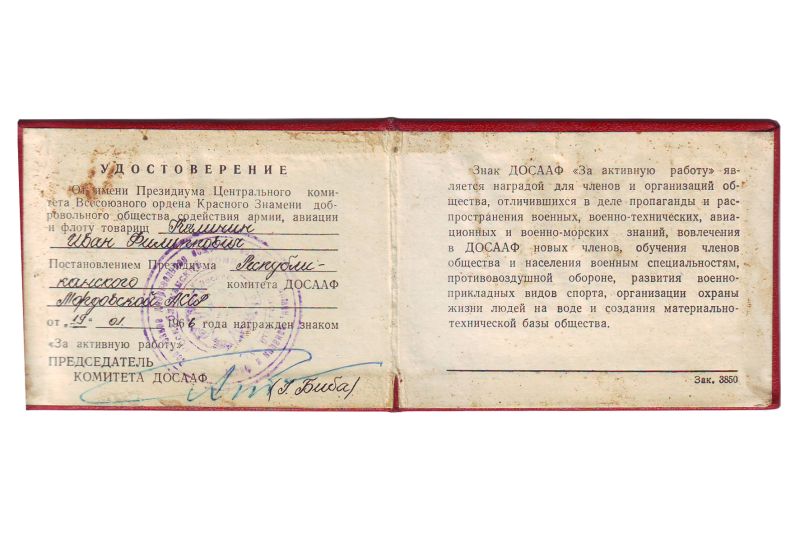 УДОСТОВЕРЕНИЕ
От имени Президиума Центрального коми-
тета Всесоюзного ордена Красного Знамени доб-
ровольного общества содействия армии, авиации
и флоту товарищ
Иван Филиппович
Постановлением Президиума Республи-
канского комитета ДОСААФ
Мордовской АССР
от „19“ 01 1966 года награжден знаком
«За активную работу»
ПРЕДСЕДАТЕЛЬ
КОМИТЕТА ДОСААФ
(Г. Биба)
Знак ДОСААФ «За активную работу» яв-
ляется наградой для членов и организаций об-
щества, отличившихся в деле пропаганды и рас-
пространения военных, военно-технических, авиа-
ционных и военно-морских знаний, вовлечения
в ДОСААФ новых членов, обучения членов
общества и населения военным специальностям,
противовоздушной обороне, развития военно-
прикладных видов спорта, организации охраны
жизни людей на воде и создания материально-
технической базы общества.
Зак. 3850